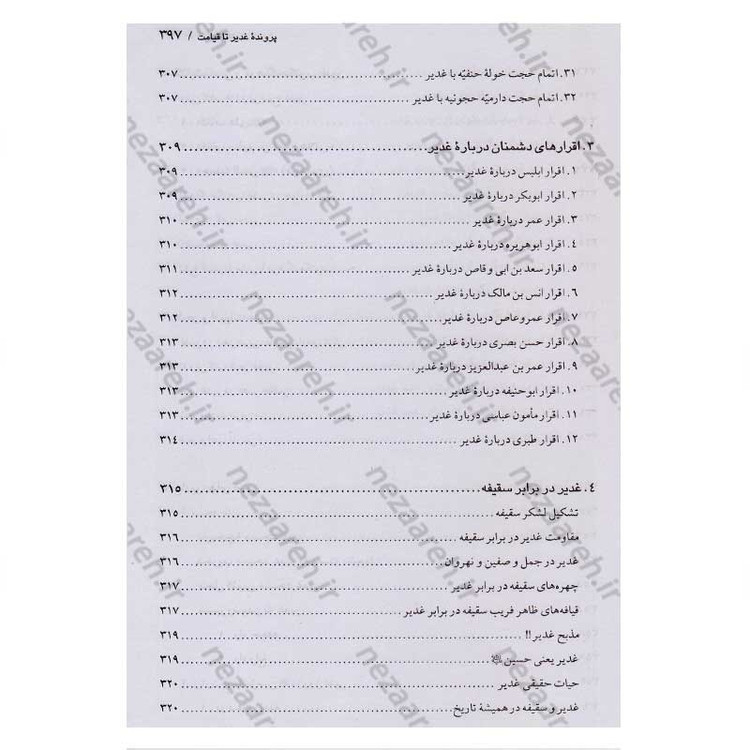 پروندهٔ غدیر تا قیامت / ۳۹۷
۳۱. اتمام حجت خولهٔ حنفیّه با غدیر ........ ۳۰۷
۳۲. اتمام حجت دارمیّه حجونیه با غدیر ........ ۳۰۷
۳. اقرارهای دشمنان دربارهٔ غدیر ........ ۳۰۹
۱. اقرار ابلیس دربارهٔ غدیر ........ ۳۰۹
۲. اقرار ابوبکر دربارهٔ غدیر ........ ۳۰۹
۳. اقرار عمر دربارهٔ غدیر ........ ۳۱۰
۴. اقرار ابوهریره دربارهٔ غدیر ........ ۳۱۰
۵. اقرار سعد بن ابی وقاص دربارهٔ غدیر ........ ۳۱۱
۶. اقرار انس بن مالک دربارهٔ غدیر ........ ۳۱۲
۷. اقرار عمروعاص دربارهٔ غدیر ........ ۳۱۲
۸. اقرار حسن بصری دربارهٔ غدیر ........ ۳۱۳
۹. اقرار عمر بن عبدالعزیز دربارهٔ غدیر ........ ۳۱۳
۱۰. اقرار ابوحنیفه دربارهٔ غدیر ........ ۳۱۳
۱۱. اقرار مأمون عباسی دربارهٔ غدیر ........ ۳۱۳
۱۲. اقرار طبری دربارهٔ غدیر ........ ۳۱۴
۴. غدیر در برابر سقیفه ........ ۳۱۵
تشکیل لشکر سقیفه ........ ۳۱۵
مقاومت غدیر در برابر سقیفه ........ ۳۱۶
غدیر در جمل و صفین و نهروان ........ ۳۱۶
چهره‌های سقیفه در برابر غدیر ........ ۳۱۷
قیافه‌های ظاهر فریب سقیفه در برابر غدیر ........ ۳۱۷
مذبح غدیر!! ........ ۳۱۹
غدیر یعنی حسین ........ ۳۱۹
حیات حقیقی غدیر ........ ۳۲۰
غدیر و سقیفه در همیشهٔ تاریخ ........ ۳۲۰
nezaareh.ir